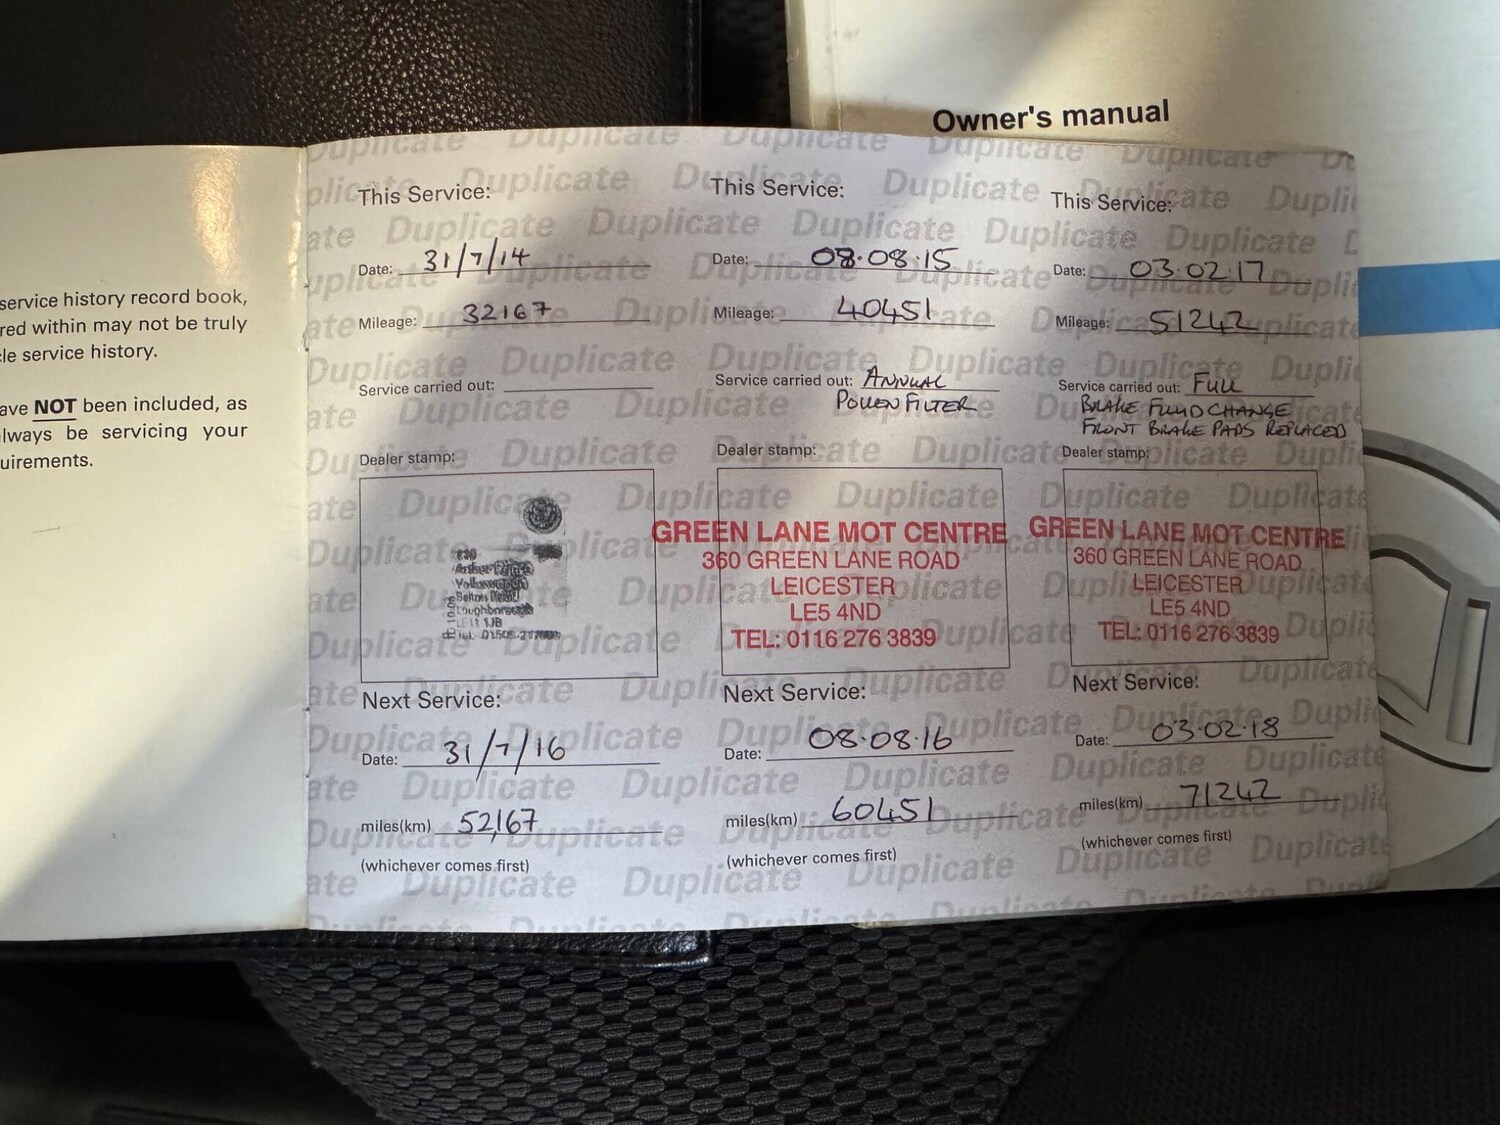 Owner's manual
service history record book,
red within may not be truly
cle service history.
ave NOT been included, as
lways be servicing your
uirements.
This Service:
Date: 31/7/14
Mileage: 32167
Service carried out:
Dealer stamp:
Loughborough
LE11 1JB
Next Service:
Date: 31/7/16
miles(km) 52,167
(whichever comes first)
This Service:
Date: 08.08.15
Mileage: 40451
Service carried out: ANNUAL
POLLEN FILTER
Dealer stamp:
GREEN LANE MOT CENTRE
360 GREEN LANE ROAD
LEICESTER
LE5 4ND
TEL: 0116 276 3839
Next Service:
Date: 08.08.16
miles(km) 60451
(whichever comes first)
This Service:
Date: 03.02.17
Mileage: 51242
Service carried out: FULL
BRAKE FLUID CHANGE
FRONT BRAKE PADS REPLACED
Dealer stamp:
GREEN LANE MOT CENTRE
360 GREEN LANE ROAD
LEICESTER
LE5 4ND
TEL: 0116 276 3839
Next Service:
Date: 03.02.18
miles(km) 71242
(whichever comes first)
Duplicate